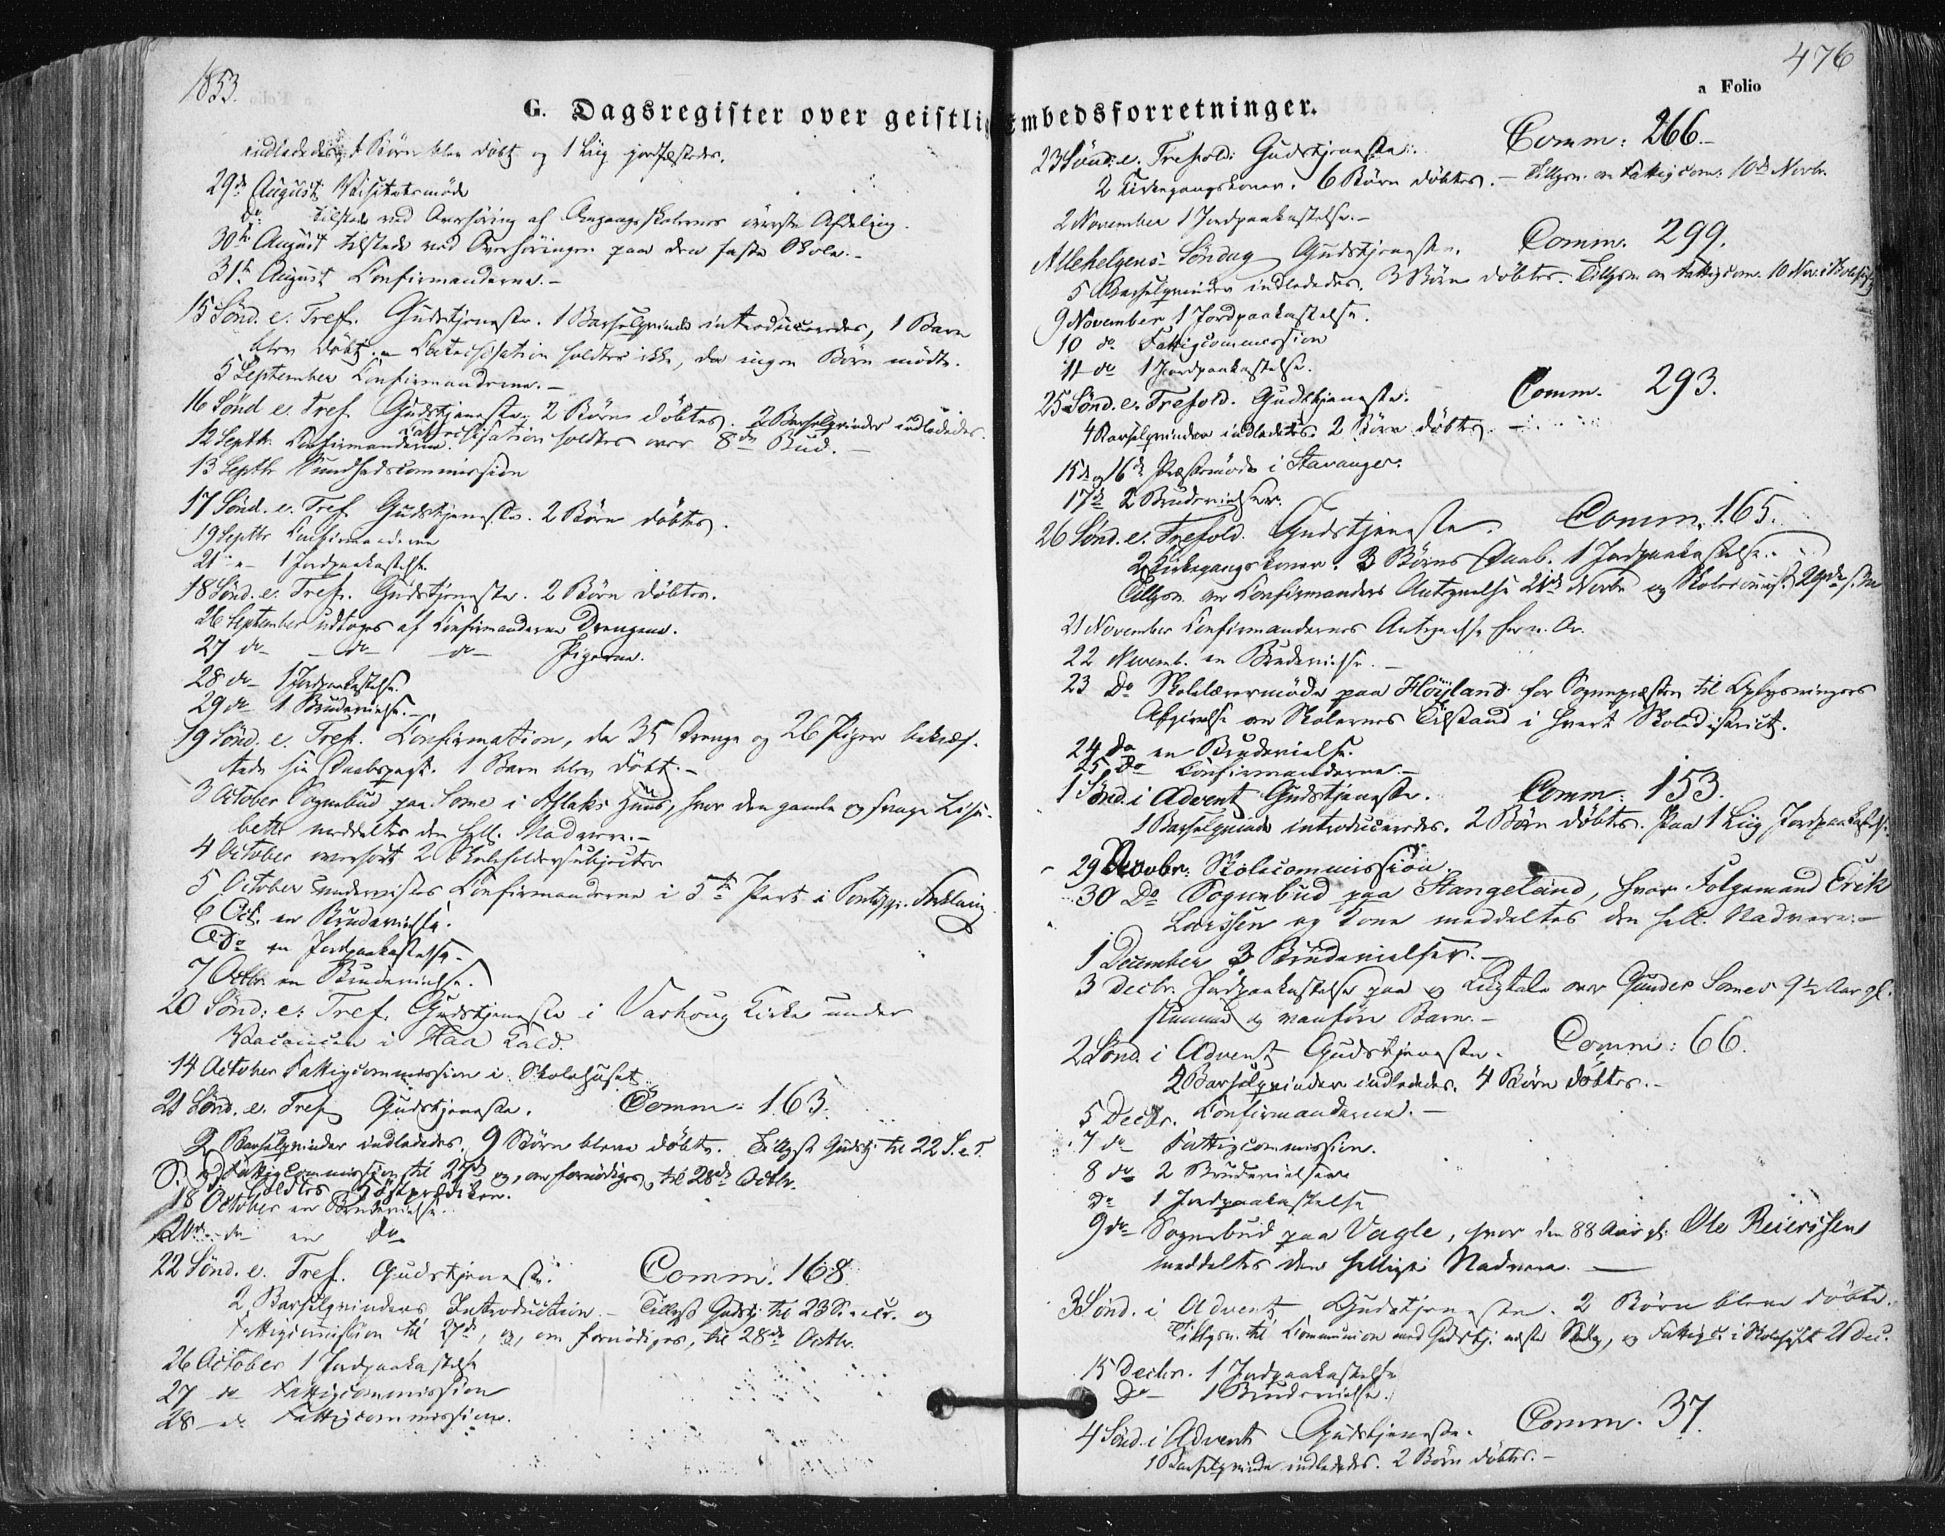 1853.
G. Dagsregister over geistlig
indledede, 1 Børn blev døbt og 1 Liig jordfæstedes.
29de August Visitatsmøde
do. tilstede ved Overhøring af Omgangsskolernes øverste Afdeling.
30te August tilstede ved Overhøringen paa den faste Skole.-
31te August Confirmanderne.-
15 Sønd. e. Tref. Gudstjeneste. 1 Barselqvinde introduceredes, 1 Barn
blev døbt. Catechisation holdtes ikke, da ingen Børn mødte.
5 September Confirmanderne.-
16 Sønd e. Tref. Gudstjeneste. 2 Børn døbtes. 2 Barselqvinder indlededes.
Catechisation holdtes over 8de Bud.-
12 Septbr. Confirmanderne.
13 Septbr Sundhedscommission
17 Sønd. e. Tref. Gudstjeneste. 2 Børn døbtes.
19 Septbr Confirmanderne
21 - 1 Jordpaakastelse.
18 Sønd. e. Tref. Gudstjeneste. 2 Børn døbtes.
26 September udtoges af Confirmanderne Drengene.
27 do - do - do - Pigerne.
28 do - 1 Jordpaakastelse.
29 do - 1 Brudevielse.-
19 Sønd. e. Tref. Confirmation, da 35 Drenge og 26 Piger bekræf-
tede sin Daabspagt. 1 Barn blev døbt.-
3 October Sognebud paa Some i Aslaks Huus, hvor den gamle og svage Lisa-
beth meddeltes den hell. Nadvere.-
4 October overhørt 2 Skoleholdersubjecter
5 October undervistes Confirmanderne i 5te Part i Pontopp. Forklaring
6 Oct. en Brudevielse.
do en Jordpaakastelse.
7 Octbr. en Brudevielse.
20 Sønd. e. Tref. Gudstjeneste i Varhoug Kirke under
Vacancen i Haa Kald.
14 October Fattigcommission i Skolehuset
21 Sønd. e. Tref Gudstjeneste. Comm: 163.
2 Barselqvinder indlededes. 9 Børn bleve døbte. Tillyst Gudstj til 22 S. e T.
Fattigcommission til 27de og, om fornødiges, til 28de Octbr.
D. S. holdtes Høstprædiken.
18 October en Brudevielse.
20de do en do
22 Sønd. e. Tref. Gudstjeneste. Comm. 168
2 Barselqvinders Introduction.- Tillyst Gudstj til 23 S. e Tr. og
Fattigcomission til 27de, og, om fornødiges, til 28de Octbr.
26 October 1 Jordpaakastelse
27 - do Fattigcommission
28 - do Fattigcommission.
476
a Folio
Embedsforretninger.
23 Sønd. e. Trefold. Gudstjeneste. Comm: 266.-
2 Kirkegangskoner. 6 Børn døbtes.- Tillysn. om Fattigcom. 10de Novbr.
2 November 1 Jordpaakastelse.-
Allehelgens Søndag Gudstjeneste. Comm. 299.
5 Barselqvinder indlededes. 3 Børn døbtes. Tillysn. om Fattigcom. 10 Nov. i
9 November 1 Jordpaakastelse.
10 do Fattigcommission
11 do 1 Jordpaakastelse.
25 Sønd. e. Trefold. Gudstjeneste. Comm. 293.
4 Barselqvinder indlededes 2 Børn døbtes.-
15de og 16de Præstemøde i Stavanger.
17de 2 Brudevielser.
26 Sønd. e. Trefold. Gudstjeneste. Comm. 165.
2 Kirkegangskoner. 3 Børns Daab. 1 Jordpaakastelse.
Tillysn. om Confirmanders Antegnelse 21de Novbr og Skolecomiss. 29de s. M
21 November Confirmandernes Antegnelse for n. Ar.
22 Novemb. en Brudevielse.-
23 Do Skolelærermøde paa Höyland for Sognepræsten til Oplysningers
Afgivelse om Skolernes Tilstand i hvert Skoledistrict.
24 Do en Brudevielse.
25 Do Confirmanderne.-
1 Sønd. i Advent Gudstjeneste. Comm: 153.
1 Barselqvinde introduceredes. 2 Børn døbtes. Paa 1 Liig Jordpaakastelse.
29 Novbr. Skolecommission
30 Do Sognebud paa Stangeland, hvor Folgemand Erik
Larssen og Kone meddeltes den hell. Nadvere.-
1 December 3 Brudevielser.-
3 Decbr. Jordpaakastelse paa og Liigtale over Gunder Somes 9½ Aar gl.
stumme og vanføre Barn.-
2 Sønd. i Advent Gudstjeneste. Comm: 66.
2 Barselqvinder indlededes. 4 Børn døbtes.-
5 Decbr. Confirmanderne.-
7 do Fattigcommission.
8 do 2 Brudevielser
Do 1 Jordpaakastelse
9 do Sognebud paa Vagle, hvor den 88 Aar gl. Ole Reiersen
meddeltes den hellige Nadvere.-
3 Sønd. i Advent Gudstjeneste. 2 Børn bleve døbte.
Tillysn. til Communion med Gudstj. næste Søndag, og Fattigc. i Skolehuset 21 Dec.
15 Decbr. 1 Jordpaakastelse
Do - 1 Brudevielse.
4 Sønd. i Advent Gudstjeneste. Comm. 37.
1 Barselqvinde indlededes. 2 Børn døbtes.-